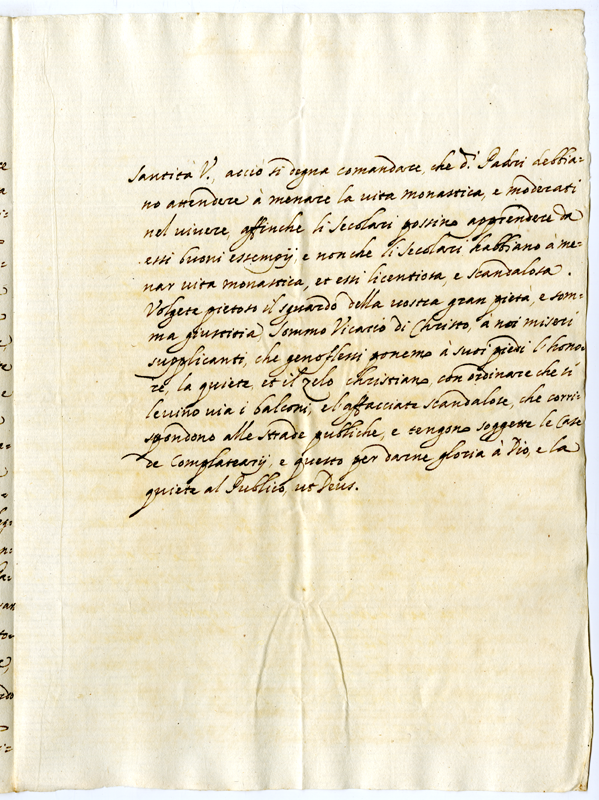 Santità V., acciò si degna comandare, che d.i Padri debbia-
no attendere à menare la vita monastica, e moderati
nel vivere, affinche li secolari possino apprendere da
essi buoni essempij, e non che li secolari habbiano à me-
nar vita monastica, et essi licentiosa, e scandalosa.
Volgete pietoso il sguardo della vostra gran pietà, e som-
ma giustitia Sommo Vicario di Christo, à noi miseri
supplicanti, che genoflessi ponemo à suoi piedi l'hono-
re, la quiete, et il zelo christiano, con ordinare che si
levino via i balconi, e l'affacciate scandalose, che corri-
spondono alle strade publiche, e tengono soggette le Case
de Complatearij, e questo per darne gloria à Dio, e la
quiete al Publico, ut Deus.